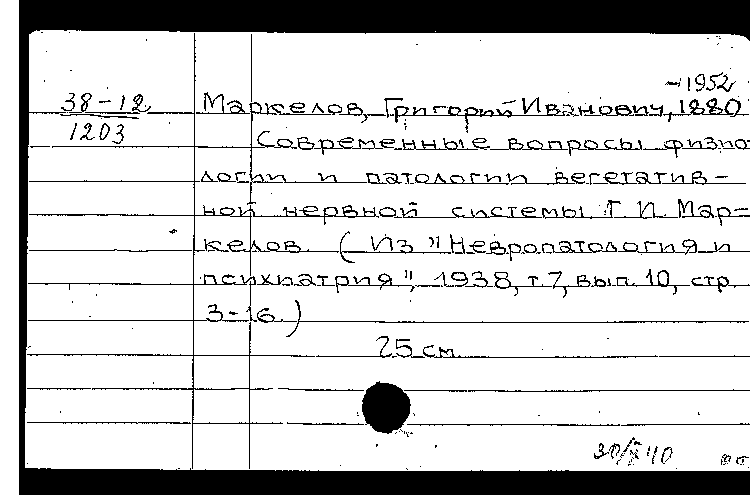 -1952
38-12
1203
Маркелов, Григорий Иванович, 1880
Современные вопросы физио
логии и патологии вегетатив-
ной нервной системы. Г. И. Мар-
келов. (Из "Невропатология и
психиатрия", 1938, т. 7, вып. 10, стр.
3-16.)
25 см.